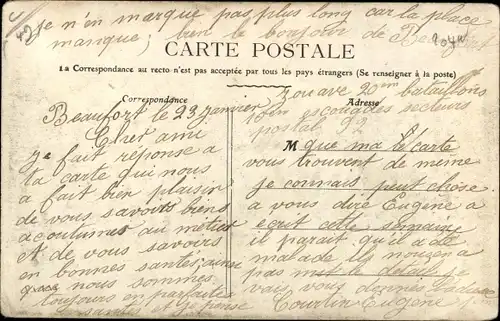 je n'en marque pas plus long car la place
manque; bien le bonjour de
CARTE POSTALE
La Correspondance au recto n'est pas acceptée par tous les pays étrangers (Se renseigner à la poste)
Correspondance
Adresse
Beaufort le 23 janvier
Cher ami
je fait réponse a
ta carte qui nous
a fait bien plaisir
de vous savoirs biens
acoutumer au métier
et de vous savoirs
en bonnes santes, ainsi
que nous sommes
toujours en parfaites
santes et je pense
zouave 2em bataillons
10em escouades secteurs
postal 92
M que ma carte
vous trouvent de meme
je connais peut chose
a vous dire Eugène a
ecrit cette semaine
il parait qu'il a été
malade
pas met le detaille je
vais vous donner
Courtin Eugène